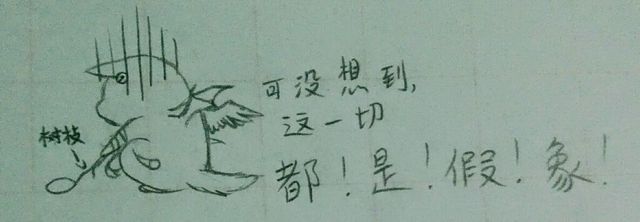 可没想到,
这一切
都！是！假！象！
树枝